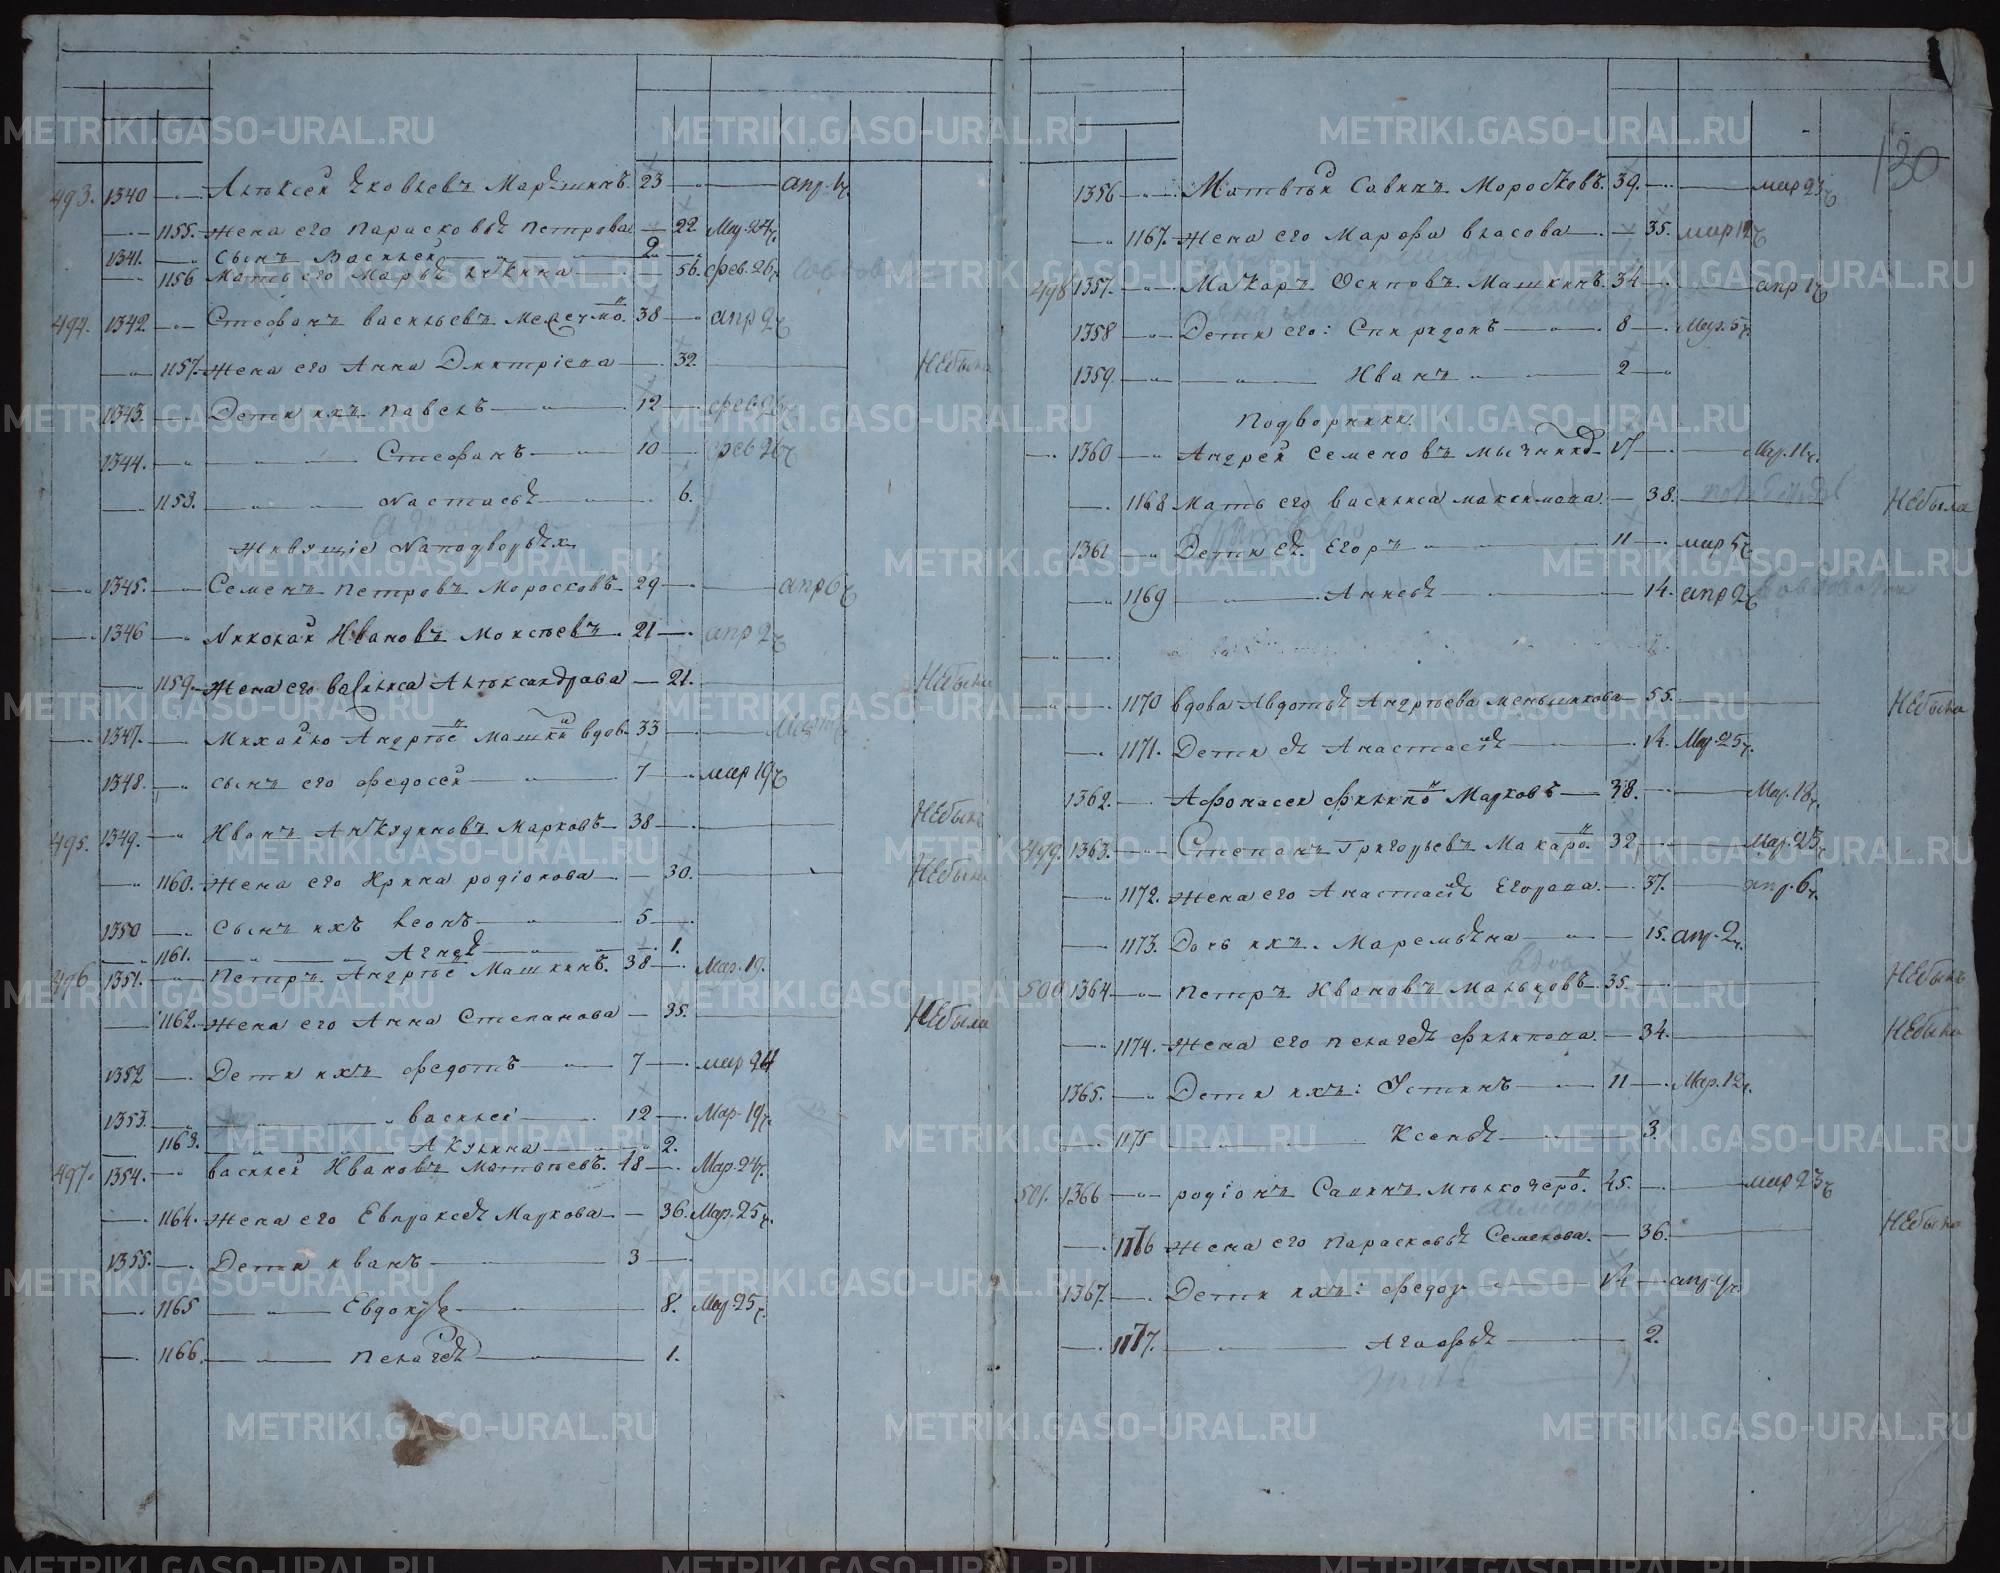 493. 1340 Алѣксей Яковлевъ Маряшинъ. 23 апр. 4ч
1155. Жена его Парасковья Петрова 22 Мар. 24ч.
1341. Сынъ Василей 2
1156 Мать его Марья 56. фев. 26ч
494. 1342 Стефанъ Васильевъ 38 апр 2ч
1157. Жена его Анна Дмитріева 32. Небыла
1343. Дети ихъ Павелъ 12 фев 26ч
1344. Стефанъ 10 фев 26ч
1158. Настасья 6.
Живущіе Наподворьях
1345. Семенъ Петровъ Моросковъ 29 апр 6ч
1346 Николай Ивановъ Мокѣевъ 21 апр 2ч
1159. Жена его Василиса Алѣксандрава 21. Небыла
1347. Михайло Андрѣе Машки вдов. 33
1348. сынъ его Федосей 7 мар 19ч
495. 1349. Иванъ Анкудиновъ Марковъ 38 Небылъ
1160. Жена его Ирина Родіонова 30. Небыла
1350 Сынъ ихъ Леонъ 5
1161. Агнея 1.
496 1351. Петръ Андрѣе Машкинъ. 38 Мар. 19.
1162. Жена его Анна Степанова 35. Небыла
1352 Дети ихъ Федотъ 7 мар 24
1353. Василей 12 Мар. 19ч.
1163. Акулина 2.
497. 1354. Василей Ивановъ Матвѣевъ. 48 Мар. 24ч.
1164. Жена его Евпраксея Маркова 36. Мар. 25ч.
1355. Дети Иванъ 3
1165 Евдокея 8. Мар 25ч.
1166. Пелагея 1.
130
1356 Матвѣй Савинъ Моросковъ. 39. мар 23ч
1167. Жена его Марфа Власова 35. мар 12ч
498 1357. Макаръ Осиповъ Машкинъ. 34 апр 1ч
1358 Дети его: Спиридонъ 8 Мар. 5ч.
1359. Иванъ 2
Подворники.
1360 Андрей Семеновъ Мар. 11ч.
1168 Мать его Василиса Максимова 38. Небыла
1361 Дети ея Егоръ 11 мар 5ч
1169 Анисья 14. апр 2ч
1170 вдова Авдотья Андрѣева Меньшикова 55. Небыла
1171. Дети ея Анастасія 14. Мар. 25ч.
1362. Афонасей Филипо Марковъ 38. Мар. 18ч.
499. 1363. Степанъ Григорьевъ Макаро. 32. Мар. 23ч
1172. Жена его Анастасія Егорава. 37. апр. 6ч.
1173. Дочь ихъ. Маремьяна 15. апр. 2ч.
вдов
500 1364 Петръ Ивановъ Мальковъ 35. Небылъ
1174. Жена его Пелагея Филипова. 34. Небыла
1365. Дети ихъ: Устинъ 11 Мар. 12ч.
1175 Ксенья 3.
501. 1366 Родіонъ Савинъ 45. мар 23ч
1176 Жена его Парасковья Семенова. 36. Небыла
1367. Дети ихъ: Федор 14 апр. 4ч.
1177. Агафья 2.
METRIKI.GASO-URAL.RU